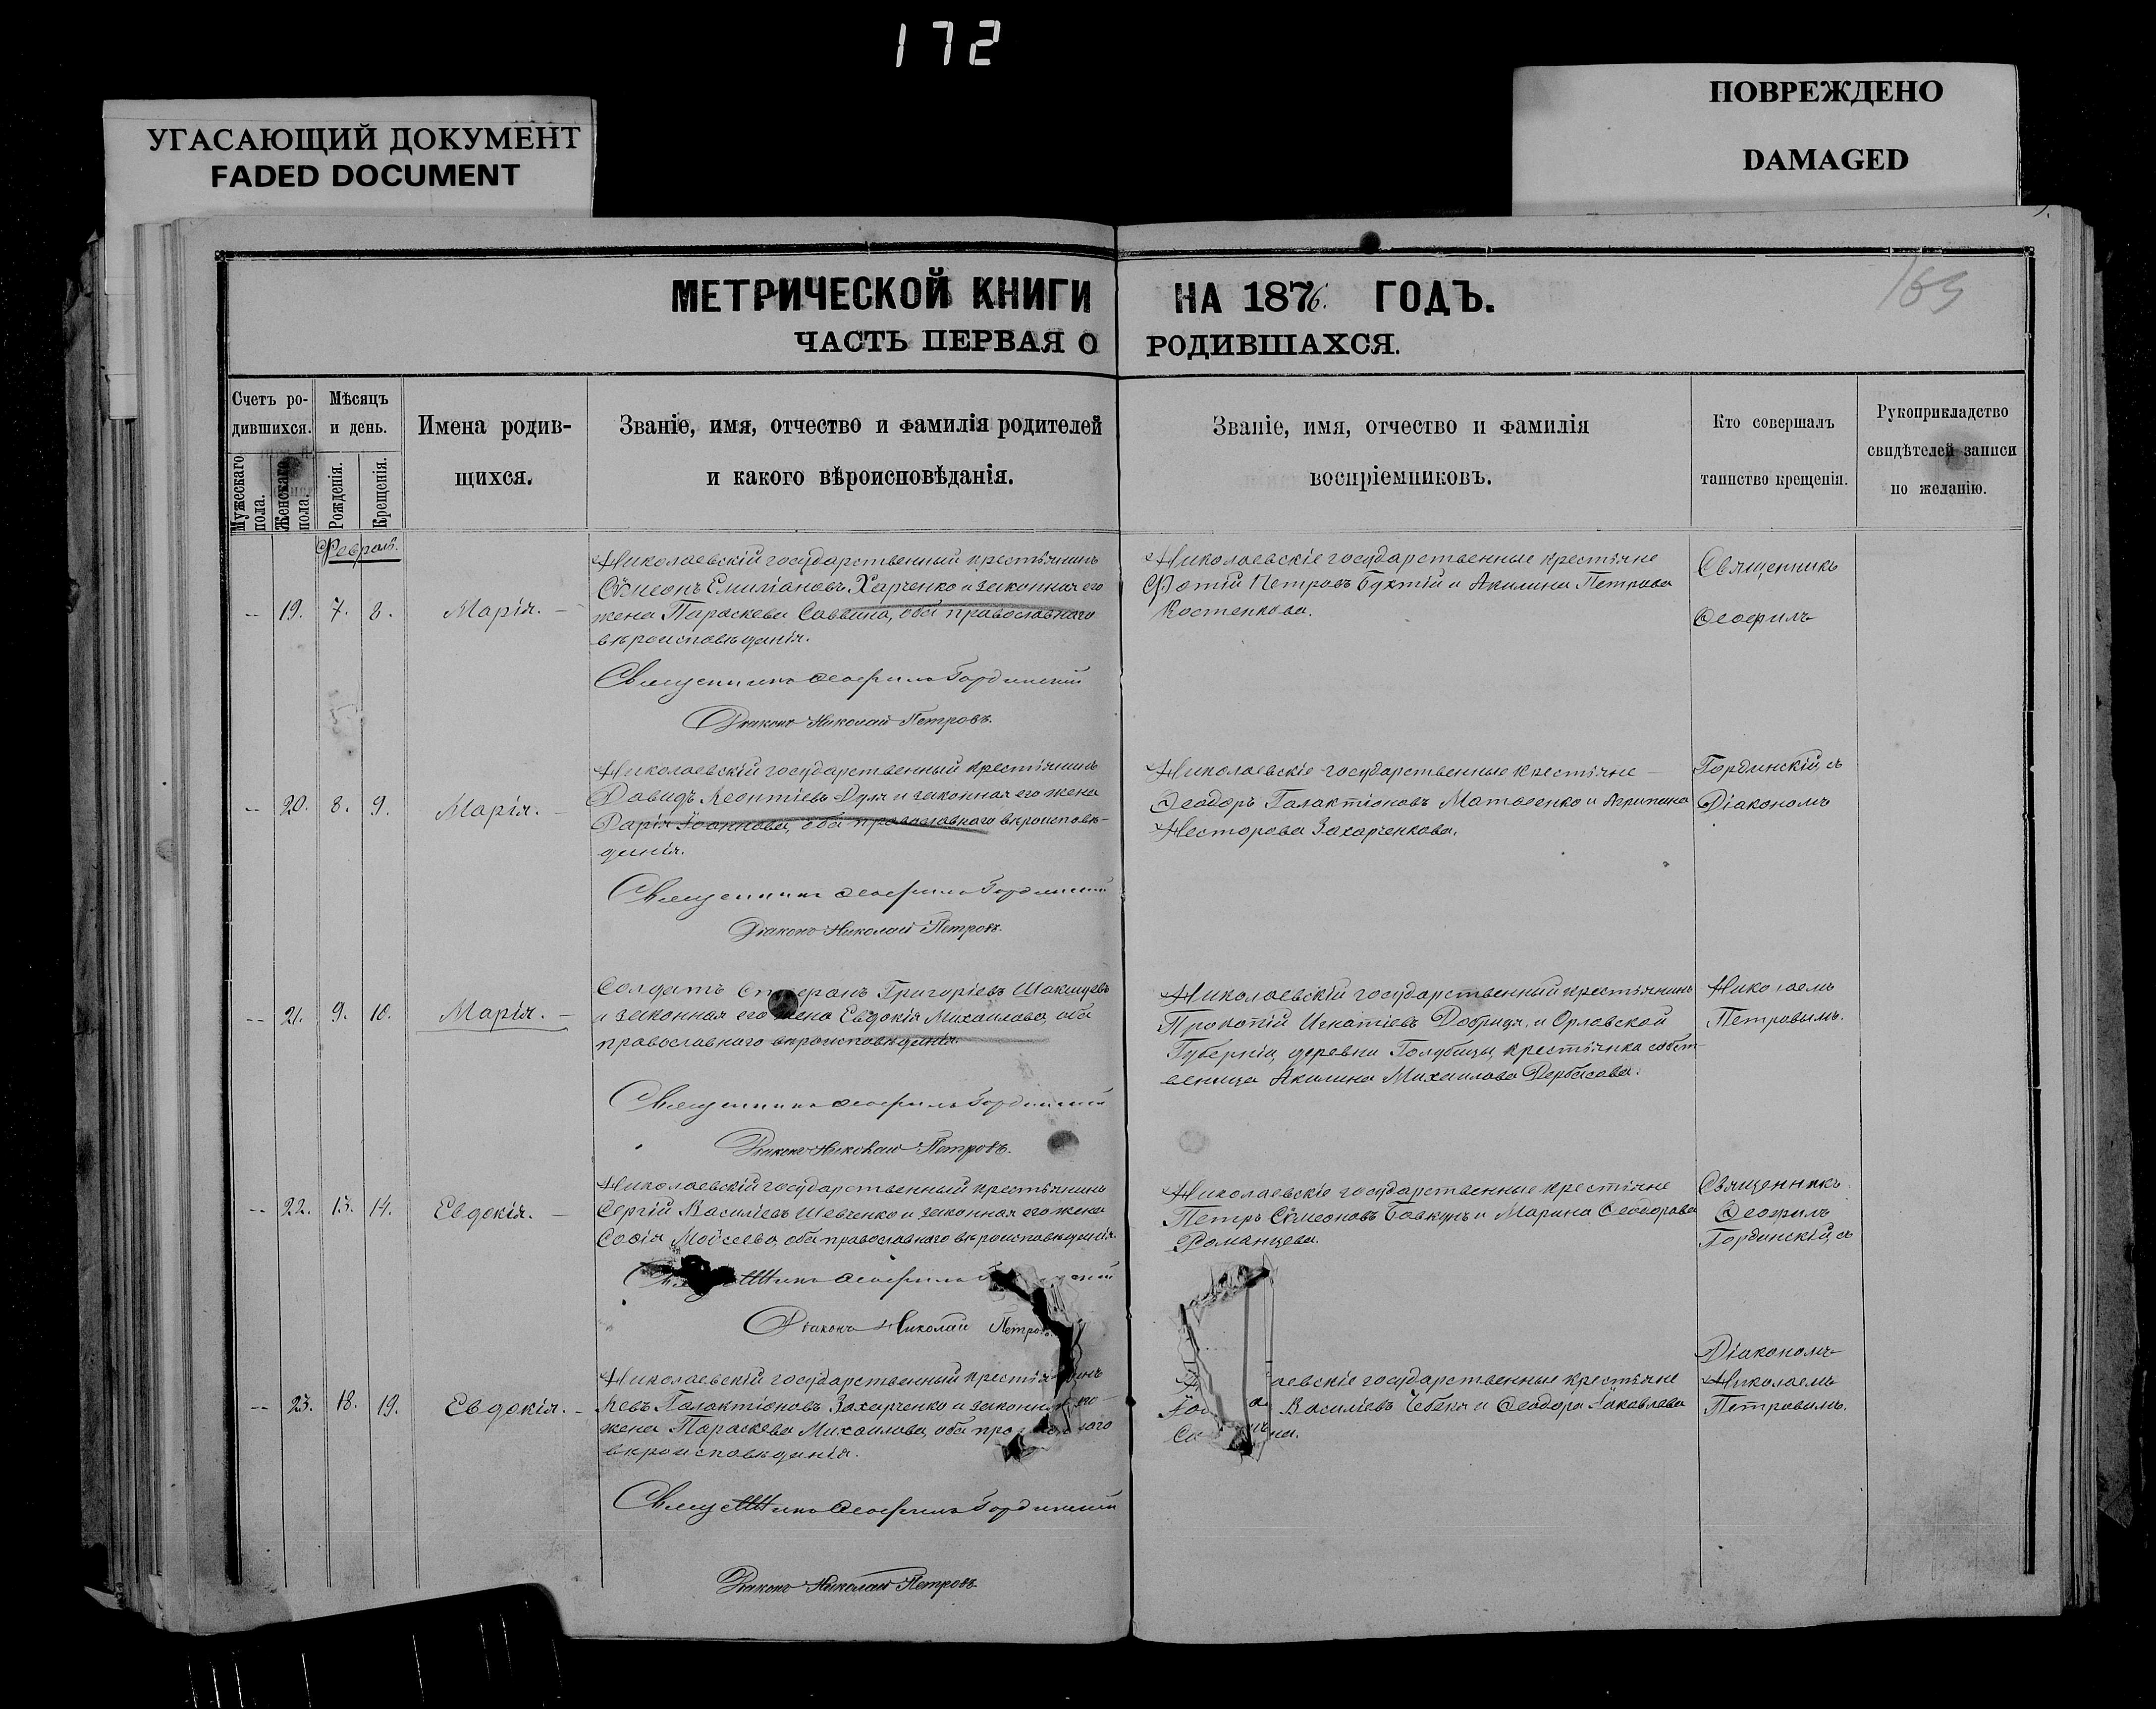 172
УГАСАЮЩИЙ ДОКУМЕНТ
FADED DOCUMENT
ПОВРЕЖДЕНО
DAMAGED
169
МЕТРИЧЕСКОЙ КНИГИ НА 1876. ГОДЪ.
ЧАСТЬ ПЕРВАЯ О РОДИВШАХСЯ.
Счетъ ро-
дившихся.
Мужескаго пола.
Женскаго пола.
Мѣсяцъ
и день.
Рожденія.
Крещенія.
Имена родив-
щихся.
Званіе, имя, отчество и фамилія родителей
и какого вѣроисповѣданія.
Званіе, имя, отчество и фамилія
воспріемниковъ.
Кто совершалъ
таинство крещенія.
Рукоприкладство
свидѣтелей записи
по желанію.
Февраль.
-- 19. 7. 8. Марія. –
Николаевскій государственный крестьянинъ
Сѵмеонъ Емиліановъ Харченко и законная его
жена Параскева Саввина, оба православнаго
вѣроисповѣданія.
Священникъ Ѳеофилъ Гординскій
Діаконъ Николай Петровъ.
Николаевскіе государственные крестьяне
Фотій Петровъ Бухтій и Акилина Петрова
Костенкова.
Священникъ
Ѳеофилъ
-- 20. 8. 9. Марія. –
Николаевскій государственный крестьянинъ
Давидъ Леонтіевъ Дуля и законная его жена
Дарія Іоаннова, оба православнаго вѣроисповѣ-
данія.
Священникъ Ѳеофилъ Гординскій
Діаконъ Николай Петровъ.
Николаевскіе государственные крестьяне –
Ѳеодоръ Галактіоновъ Матвеенко и Агрипина
Несторова Захарченкова.
Гординскій, съ
Діакономъ
-- 21. 9. 10. Марія. –
Солдатъ Григоріевъ
и законная его жена Евдокія Михаилова, оба
православнаго вѣроисповѣданія.
Священникъ Ѳеофилъ Гординскій
Діаконъ Николай Петровъ.
Николаевскій государственный крестьянинъ
Прокопій Игнатіевъ Добридя, и Орловской
Губерніи, деревни Голубицы, крестьянка собст-
венница Акилина Михаилова Дербасова.
Николаемъ
Петровымъ.
-- 22. 13. 14. Евдокія. –
Николаевскій государственный крестьянинъ
Сергій Василіевъ Шевченко и законная его жена
Софія Моѵсеева, оба православнаго вѣроисповѣданія.
Ѳеофилъ
Діаконъ Николай Петровъ.
Николаевскіе государственные крестьяне
Петръ Сѵмеоновъ Бавкунъ и Марина Ѳеодорова
Романцева.
Священникъ
Ѳеофилъ
Гординскій, съ
-- 23. 18. 19. Евдокія. –
Николаевскій государственный
Левъ Галактіоновъ Захарченко и
жена Параскева Михаилова, оба
вѣроисповѣданія.
Священникъ Ѳеофилъ Гординскій
Діаконъ Николай Петровъ.
государственные крестьяне
Василіевъ и Ѳеодора Іаковлева
Діакономъ
Николаемъ
Петровымъ.